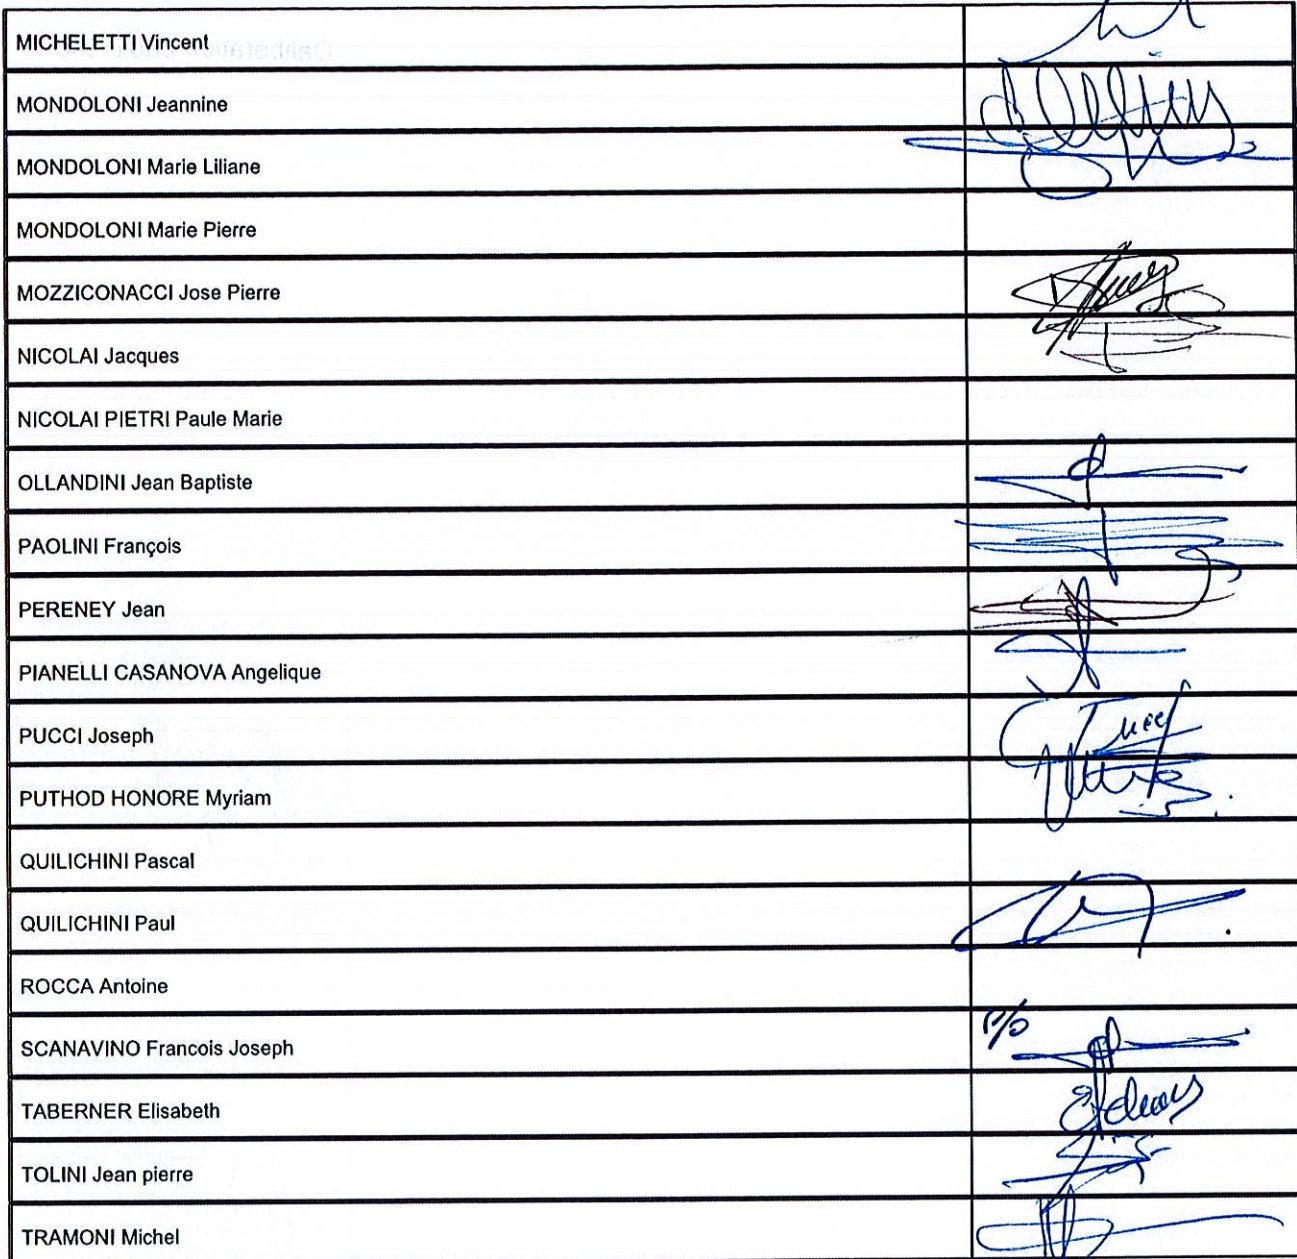 MICHELETTI Vincent
MONDOLONI Jeannine
MONDOLONI Marie Liliane
MONDOLONI Marie Pierre
MOZZICONACCI Jose Pierre
NICOLAI Jacques
NICOLAI PIETRI Paule Marie
OLLANDINI Jean Baptiste
PAOLINI François
PERENEY Jean
PIANELLI CASANOVA Angelique
PUCCI Joseph
PUTHOD HONORE Myriam
QUILICHINI Pascal
QUILICHINI Paul
ROCCA Antoine
SCANAVINO Francois Joseph P/O
TABERNER Elisabeth
TOLINI Jean pierre
TRAMONI Michel